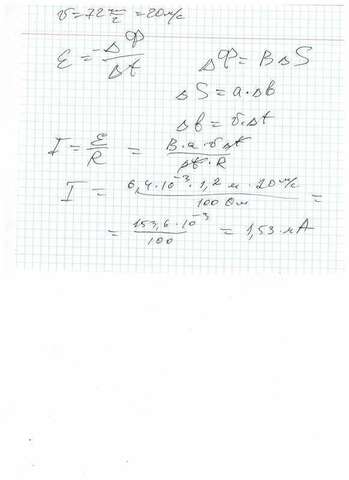 v = 72 км/ч = 20 м/с
ε = -ΔΦ/Δt   ΔΦ = BΔS
ΔS = a·Δb
Δb = v·Δt
I = ε/R = B·a·v·Δt/Δt·R
I = 6,4·10⁻³·1,2 м·20 м/с / 100 Ом =
= 153,6·10⁻³/100 = 1,53·мА